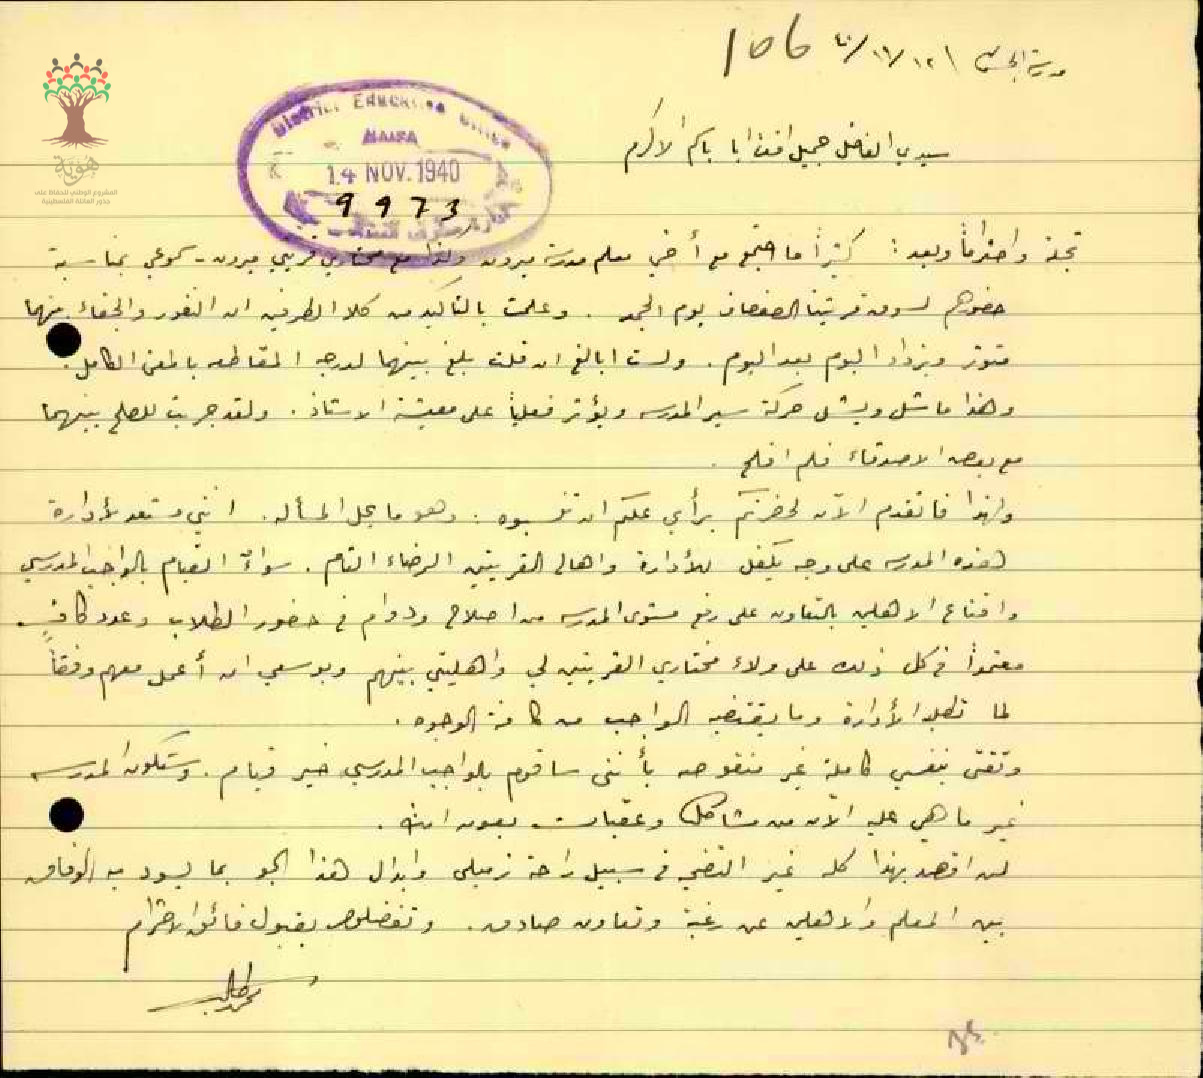 مدرسة الجش ١٢/١١/٤٠
156
سيدي الفاضل جميل افندي ابا باكم الاكرم
District Education Office
HAIFA
14 NOV. 1940
9973
هوية
المشروع الوطني للحفاظ على
جذور العائلة الفلسطينية
تحية واحتراماً وبعد: كثيراً ما اجتمع مع أخي معلم مدرسة ميرون وكذا مع مختاري قريتي ميرون - سموعي بمناسبة
حضورهم لسوق قريتنا الصفصاف يوم الجمعة . وعلمت بالتأكيد من كلا الطرفين ان النفور والجفاء بينهما
متوتر ويزداد اليوم بعد اليوم . ولست ابالغ ان قلت بلغ بينهما لدرجة المقاطعه بالمعنى الكامل .
وهذا ما شل ويشل حركة سير المدرسه ويؤثر فعلياً على معيشة الاستاذ . ولقد جربت للصلح بينهما
مع بعض الاصدقاء فلم افلح .
ولهذا فاتقدم الآن لحضرتكم برأي علكم ان تنسبوه : وهو ما يحل المسأله . انني مستعد لأدارة
هذه المدرسه على وجه يكفل للأدارة واهالي القريتين الرضاء التام . سواءً القيام بالواجب المدرسي
واقناع الاهلين بالتعاون على رفع مستوى المدرسه من اصلاح ودوام في حضور الطلاب وعدد كافٍ
معتمداً في كل ذلك على ولاء مختاري القريتين لي واهليتي بينهم وبوسعي ان أعمل معهم وفقاً
لما تطلبه الأدارة وما يقتضيه الواجب من كافة الوجوه .
وثقتي بنفسي كاملة غير منقوصه بأنني ساقوم بالواجب المدرسي خير قيام . وستكون المدرسه
غير ما هي عليه الآن من مشاكل وعقبات بعون الله .
لست اقصد بهذا كله غير التضحية في سبيل راحة زميلي وابدال هذا الجو بما يسود به الوفاق
بين المعلم والاهلين عن رغبة وتعاون صادق . وتفضلوا بقبول فائق الاحترام